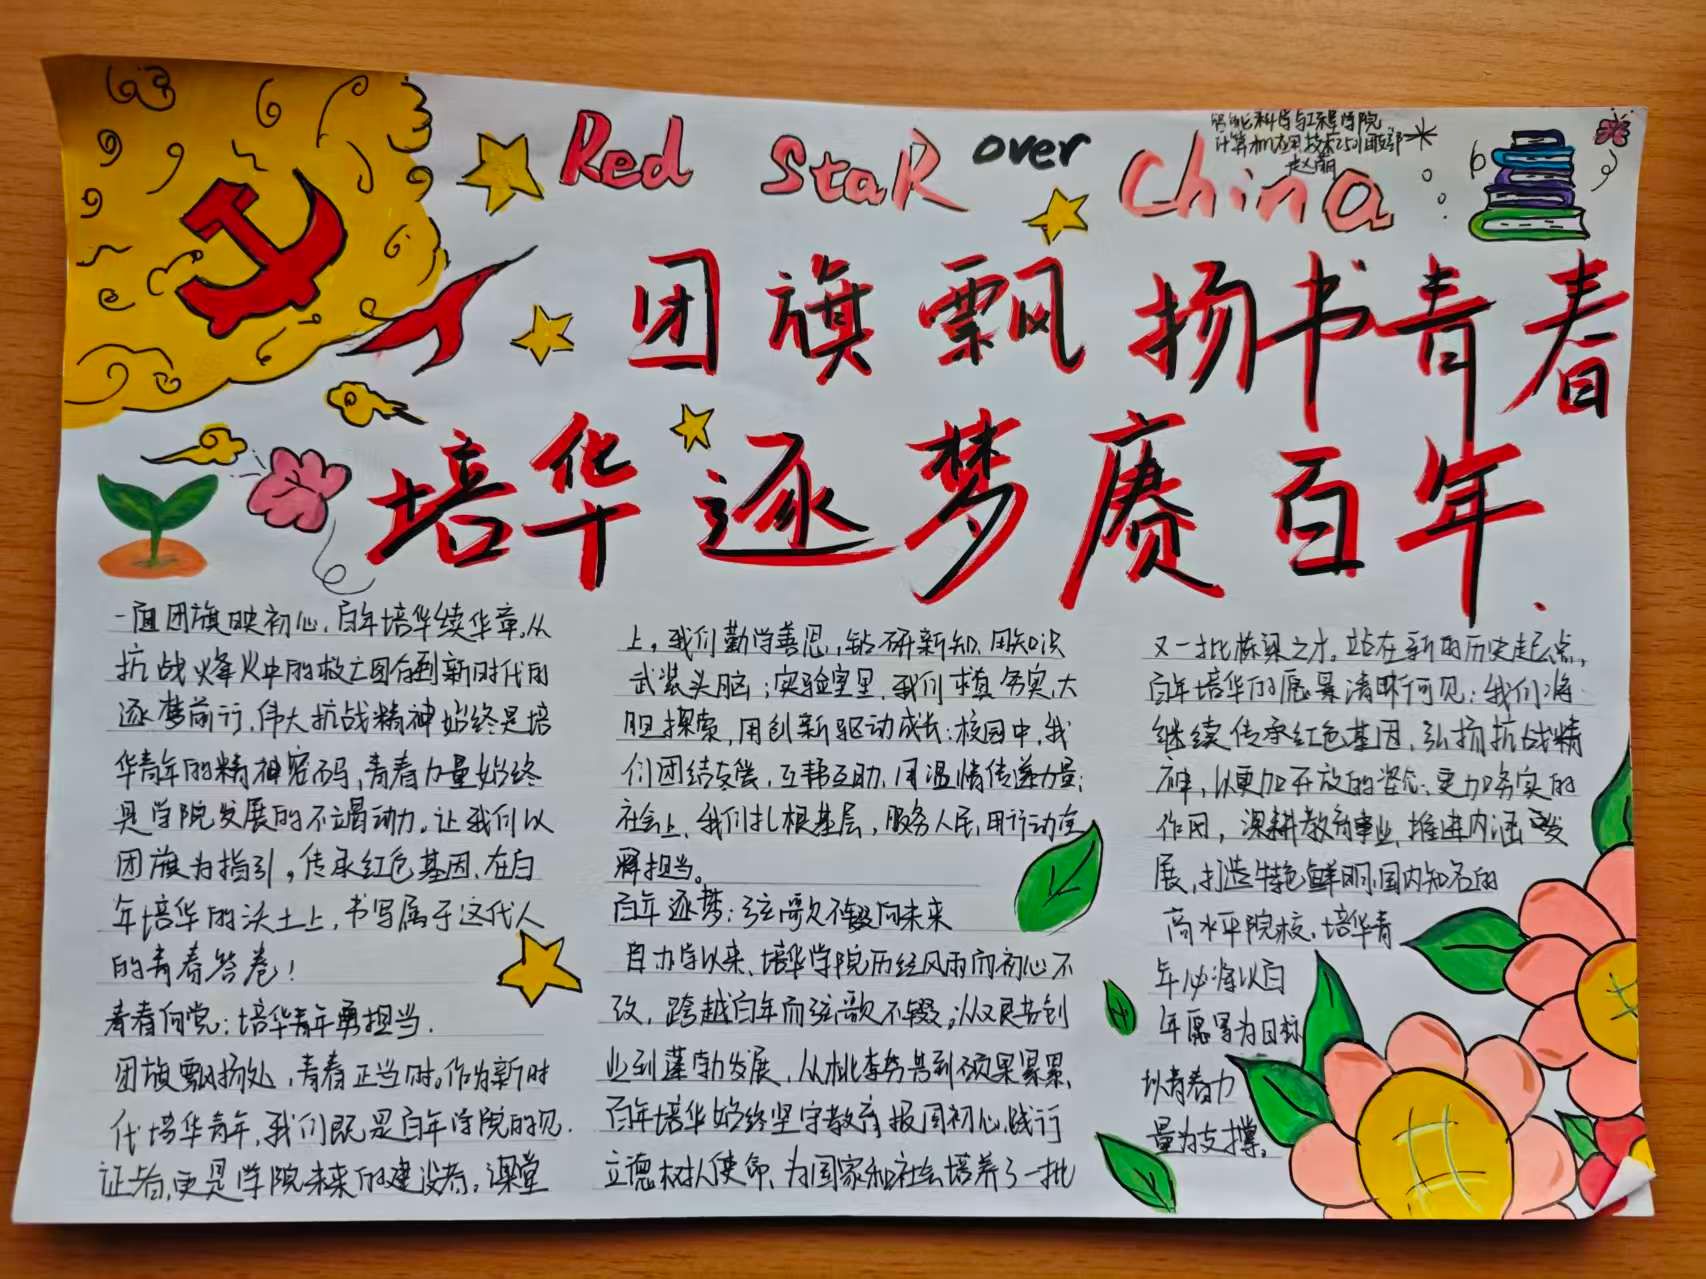 Red Star over China
智能科学与工程学院
计算机应用技术2501团支部
赵萌
团旗飘扬书青春
培华逐梦赓百年
一面团旗映初心,百年培华续华章。从
抗战烽火中的救亡图存到新时代的
逐梦前行,伟大抗战精神始终是培
华青年的精神密码,青春力量始终
是学院发展的不竭动力。让我们以
团旗为指引,传承红色基因,在百
年培华的沃土上,书写属于这代人
的青春答卷!
青春向党:培华青年勇担当.
团旗飘扬处,青春正当时。作为新时
代培华青年,我们既是百年学院的见
证者,更是学院未来的建设者。课堂
上,我们勤学善思,钻研新知,用知识
武装头脑;实验室里,我们求真务实,大
胆探索,用创新驱动成长;校园中,我
们团结友爱,互帮互助,用温情传递力量;
社会上,我们扎根基层,服务人民,用行动诠
释担当。
百年逐梦:弦歌不辍向未来
自办学以来,培华学院历经风雨而初心不
改,跨越百年而弦歌不辍;从艰苦创
业到蓬勃发展,从桃李芬芳到硕果累累,
百年培华始终坚守教育报国初心,践行
立德树人使命,为国家和社会培养了一批
又一批栋梁之才。站在新的历史起点,
百年培华的愿景清晰可见:我们将
继续传承红色基因,弘扬抗战精
神,以更加开放的姿态、更加务实的
作风,深耕教育事业,推进内涵发
展,打造特色鲜明、国内知名的
高水平院校。培华青
年必将以百
年愿景为目标
以青春力
量为支撑。